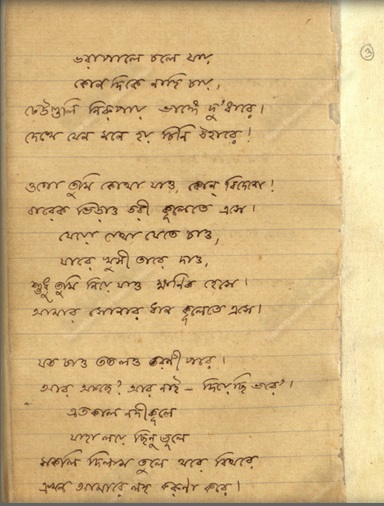 ভরা পালে চলে যায়,
কোন দিকে নাহি চায়,
ঢেউগুলি নিরুপায় ভাঙ্গে দু'ধারে।
দেখে যেন মনে হয় চিনি উহারে!
ওগো তুমি কোথা যাও, কোন্ বিদেশে!
বারেক ভিড়াও তরী কূলেতে এসে।
যেয়ো যেথা যেতে চাও,
যারে খুসী তারে দাও,
শুধু তুমি নিয়ে যাও ক্ষণিক হেসে
আমার সোনার ধান কূলেতে এসে।
যত চাও তত লও তরণী পরে।
আর আছে? আর নাই – দিয়েছি ভরে'।
এতকাল নদীকূলে
যাহা লয়ে ছিনু ভুলে
সকলি দিলাম তুলে থরে বিথরে
এখন আমারে লহ করুণা করে।
৩